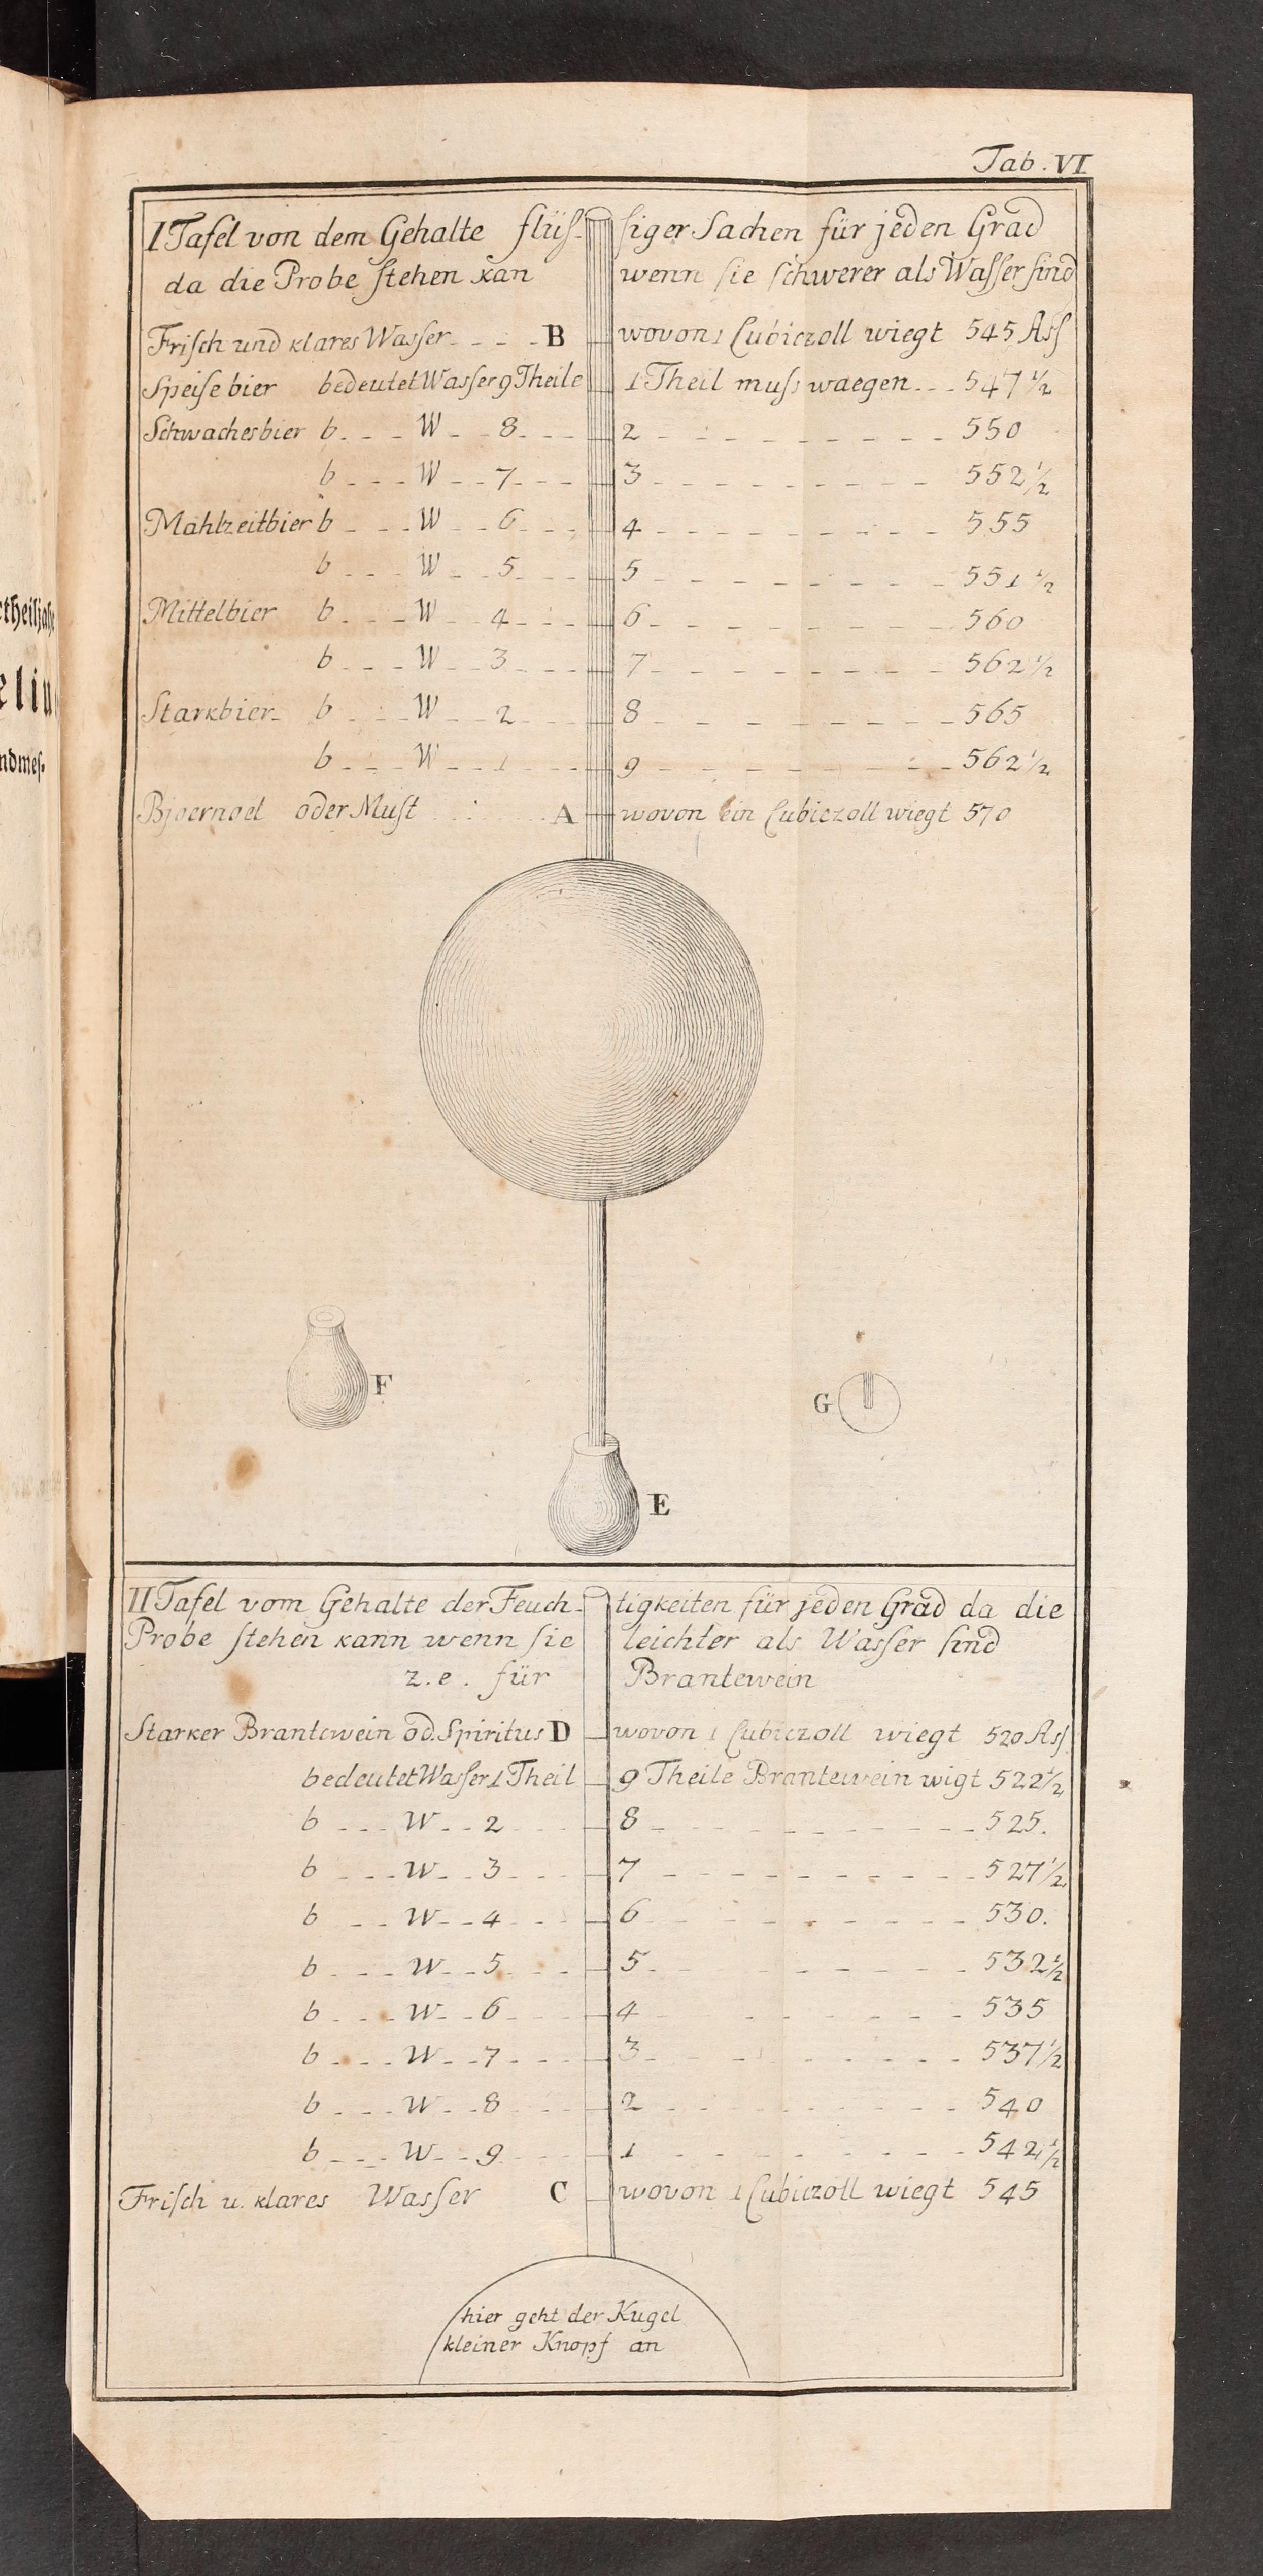 Tab. VI
I Tafel von dem Gehalte flüs- siger Sachen für jeden Grad
da die Probe stehen kan wenn sie schwerer als Wasser sind
Frisch und klares Wasser - - - - B wovon 1 Cubiczoll wiegt 545 Ass
Speise bier bedeutet Wasser 9 Theile 1 Theil muss waegen - - - 547 1/2
Schwaches bier b - - - W - - 8 - - - 2 - - - - - - - - - 550
b - - - W - - 7 - - - 3 - - - - - - - - - 552 1/2
Mahlzeitbier b - - - W - - 6 - - - 4 - - - - - - - - - 555
b - - - W - - 5 - - - 5 - - - - - - - - - 551 1/2
Mittelbier b - - - W - - 4 - - - 6 - - - - - - - - - 560
b - - - W - - 3 - - - 7 - - - - - - - - - 562 1/2
Starkbier - b - - - W - - 2 - - - 8 - - - - - - - - - 565
b - - - W - - 1 - - - 9 - - - - - - - - - 562 1/2
Bjoernoel oder Must - - - - A wovon ein Cubiczoll wiegt 570
F
G
E
II Tafel vom Gehalte der Feuch- tigkeiten für jeden Grad da die
Probe stehen kann wenn sie leichter als Wasser sind
z. e. für Brantewein
Starker Brantewein od. Spiritus D wovon 1 Cubiczoll wiegt 520 Ass
bedeutet Wasser 1 Theil 9 Theile Brantewein wigt 522 1/2
b - - - W - - 2 - - - 8 - - - - - - - - - 525.
b - - - W - - 3 - - - 7 - - - - - - - - - 527 1/2
b - - - W - - 4 - - - 6 - - - - - - - - - 530.
b - - - W - - 5 - - - 5 - - - - - - - - - 532 1/2
b - - - W - - 6 - - - 4 - - - - - - - - - 535
b - - - W - - 7 - - - 3 - - - - - - - - - 537 1/2
b - - - W - - 8 - - - 2 - - - - - - - - - 540
b - - - W - - 9 - - - 1 - - - - - - - - - 542 1/2
Frisch u. klares Wasser C wovon 1 Cubiczoll wiegt 545
hier geht der Kugel
kleiner Knopf an